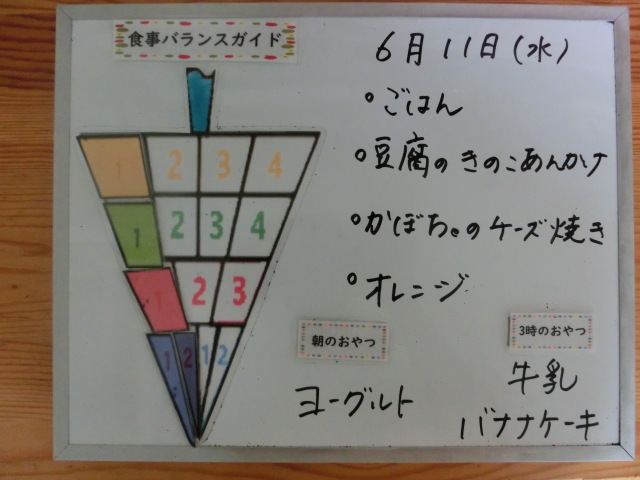 食事バランスガイド
1 2 3 4
1 2 3 4
1 2 3
1 2 1 2
6月11日(水)
○ごはん
○豆腐のきのこあんかけ
○かぼちゃのケーズ焼き
○オレンジ
朝のおやつ
ヨーグルト
3時のおやつ
牛乳
バナナケーキ